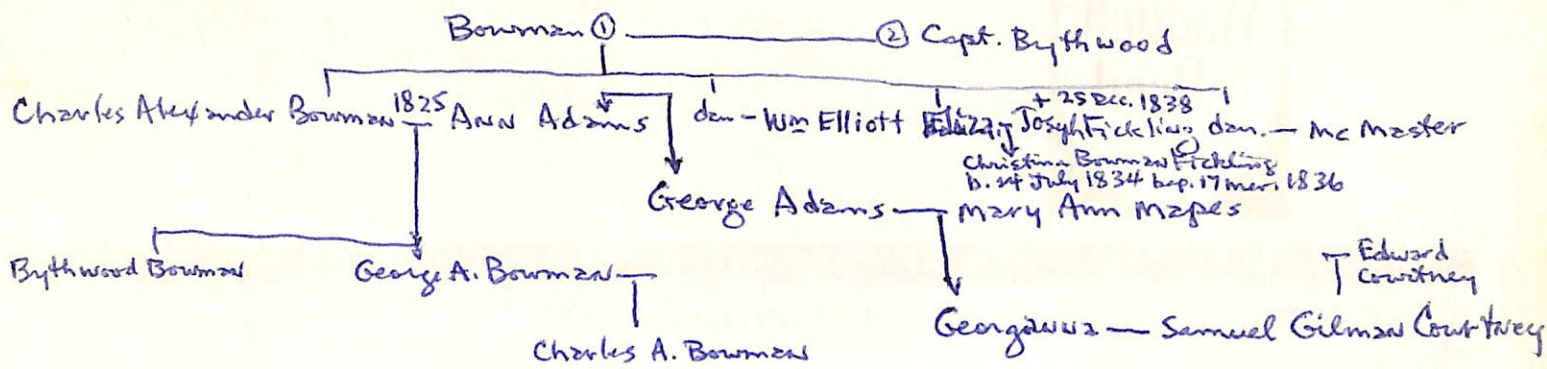 Bowman ① ② Capt. Bythwood
+ 25 Dec. 1838
Charles Alexander Bowman 1825 Ann Adams dau - Wm Elliott Eliza Joseph Fickling dau. - McMaster
Christina Bowman Fickling
b. 24 July 1834 bap. 17 mar. 1836
George Adams — Mary Ann Mapes
Bythwood Bowman George A. Bowman — Edward
Courtney
Georgianna — Samuel Gilman Courtney
Charles A. Bowman